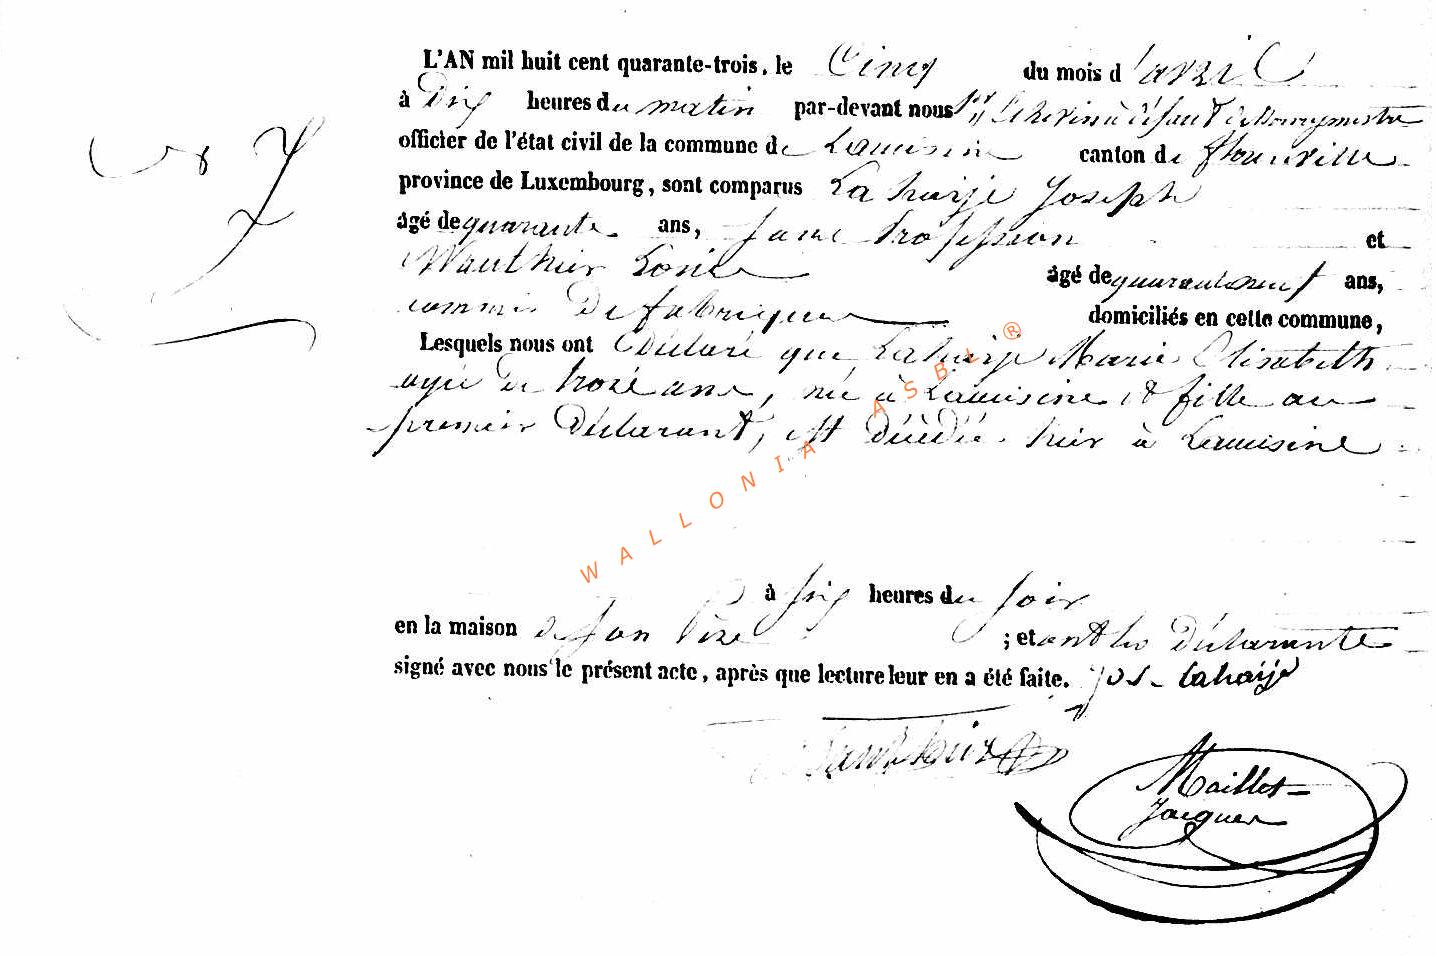 L'AN mil huit cent quarante-trois, le Cinq du mois d'avril
à Dix heures du matin par-devant nous 1er Echevin à défaut de Bourgmestre
officier de l'état civil de la commune de Lacuisine canton de florenville
province de Luxembourg, sont comparus Lahaije Joseph
âgé de quarante ans, sans profession et
Wauthier âgé de quarante neuf ans,
commis de fabrique domiciliés en cette commune,
Lesquels nous ont déclaré que Lahaije Marie Elisabeth
agée de ans, née à Lacuisine et fille au
premier Déclarant, est décédée hier à Lacuisine
à six heures du soir
en la maison de son père ; et ont les Déclarants
signé avec nous le présent acte, après que lecture leur en a été faite. Jos Lahaije
Wauthier
Maillet
Jacques
WALLONIA ASBL ®